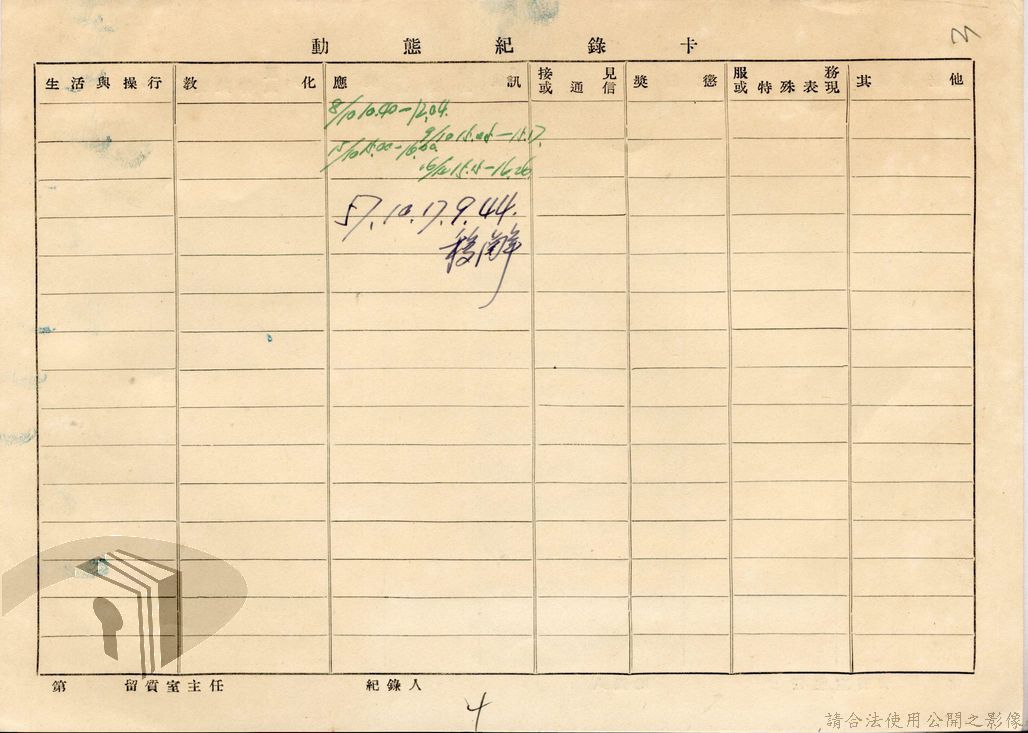 3
動態紀錄卡
生活與操行 教化 應訊 接見或通信 獎懲 服務或特殊表現 其他
8/10 10.40-12.04.
9/10 15.05-15.17.
15/10 15.00-16.00
16/10 15.15-16.26
57.10.17.9.44.
移
第 留質室主任 紀錄人
4
請合法使用公開之影像